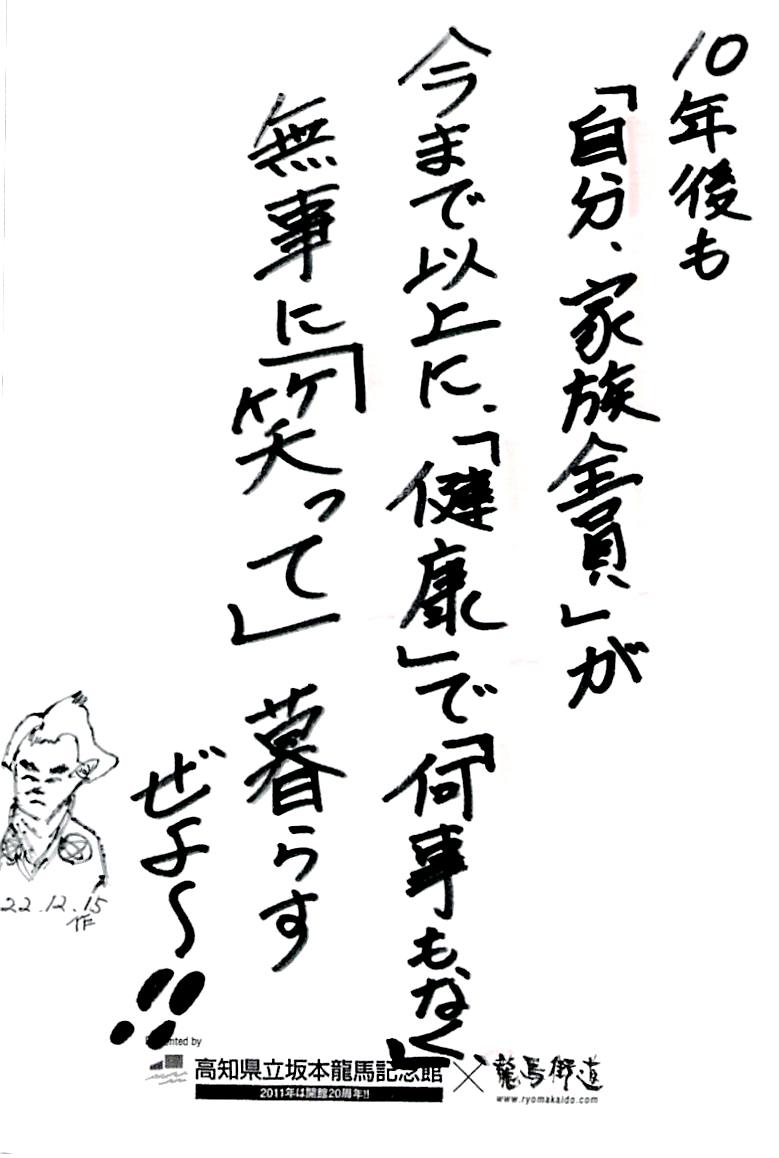 10年後も
「自分、家族全員」が
今まで以上に、「健康」で「何事もなく」
無事に「笑って」暮らす
ぜよ〜!!
22.12.15
作
Presented by
高知県立坂本龍馬記念館
2011年は開館20周年!!
×
龍馬街道
www.ryomakaido.com